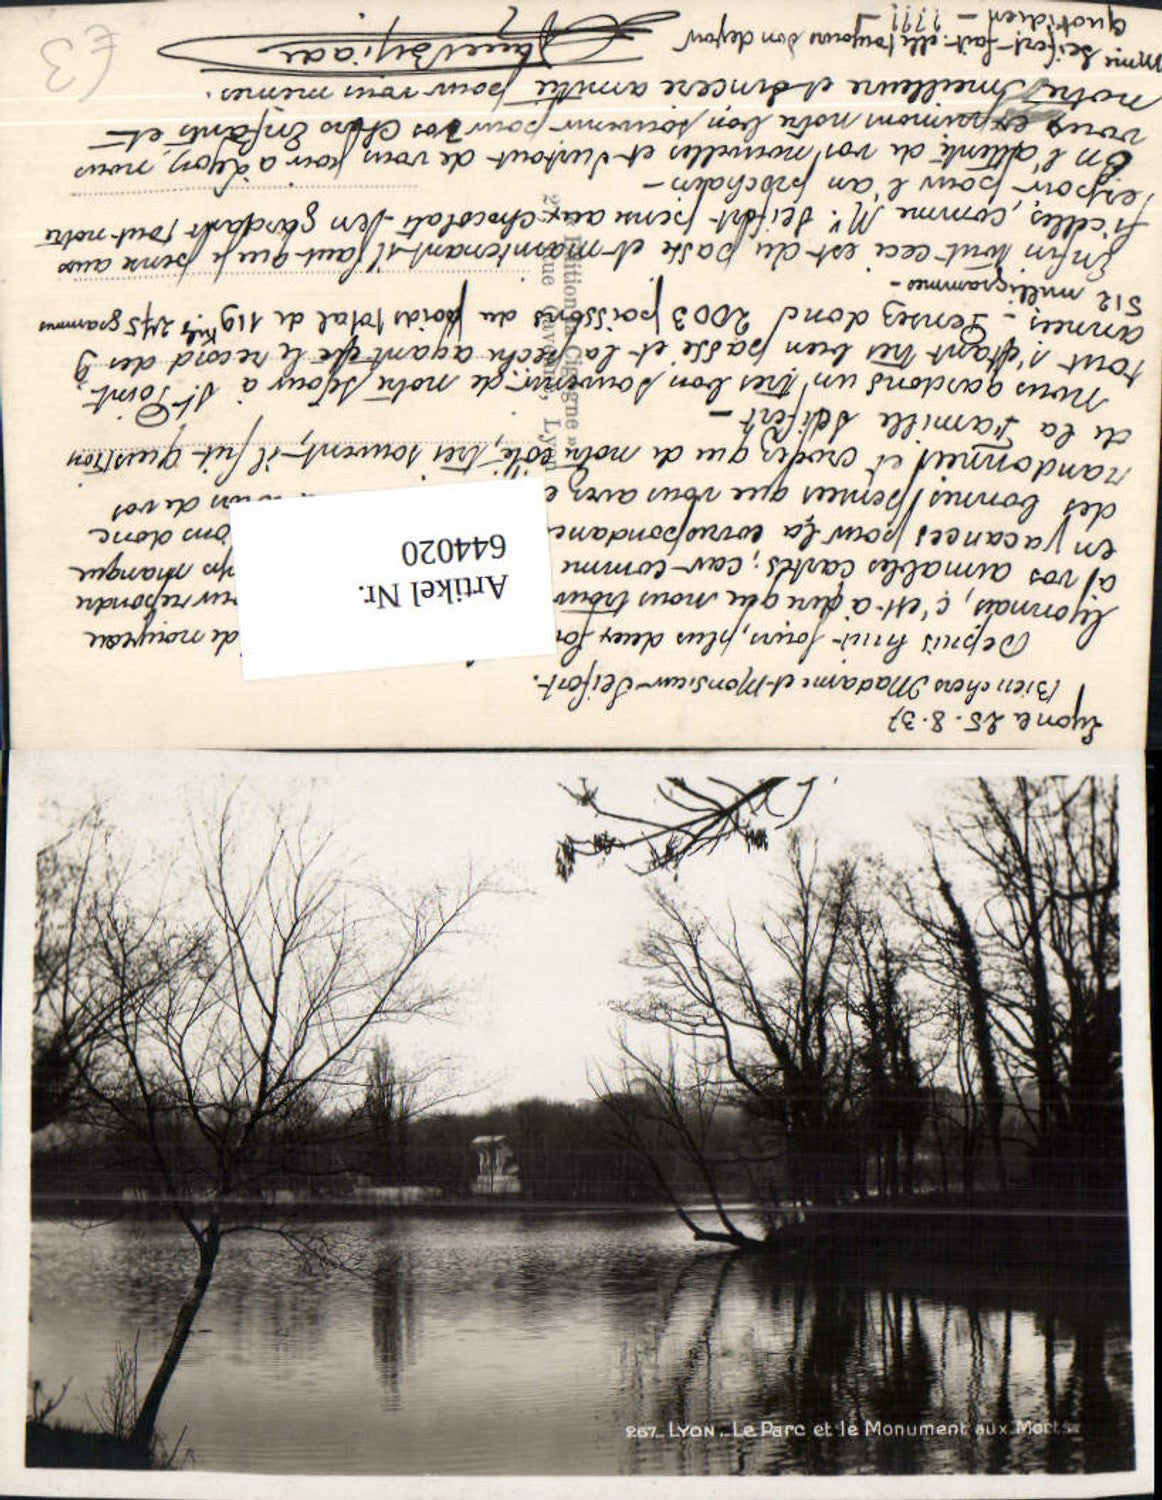 Lyon le 25.8.37
Bien chers Madame et Monsieur Seifert.
Depuis huit jours, plus deux de nouveau
lyonnais, c'est à dire que nous répondu
à vos aimables cartes; car comme manque
en vacances pour la correspondance donc
des bonnes pensées que vous avez de vos
randonnées et croyez que de notre côté, très souvent, il fut question
de la Famille Seifert —
nous gardons un très bon souvenir de notre séjour à St. Point;
tout s'étant très bien passé et la pêche ayant été le record des 9
années. — Pensez donc! 2003 poissons du poids total de 119 Kilos 245 grammes
512 milligrammes —
Enfin tout ceci est du passé et maintenant il faut que je pense aux
ficelles, comme Mr. Seifert pense aux chocolats. J'en gardant tout notre
espoir pour l'an prochain —
En l'attente de vos nouvelles et surtout de vous voir à Lyon, nous
vous exprimons notre bon souvenir pour vos Chers Enfants et
notre meilleure et sincère amitié pour vous mêmes.
Mme Seifert fait-elle toujours son
quotidien — ???!
£3
Editions « La Cigogne »
Lyon
Artikel Nr.
644020
267_ LYON._ Le Parc et le Monument aux Morts